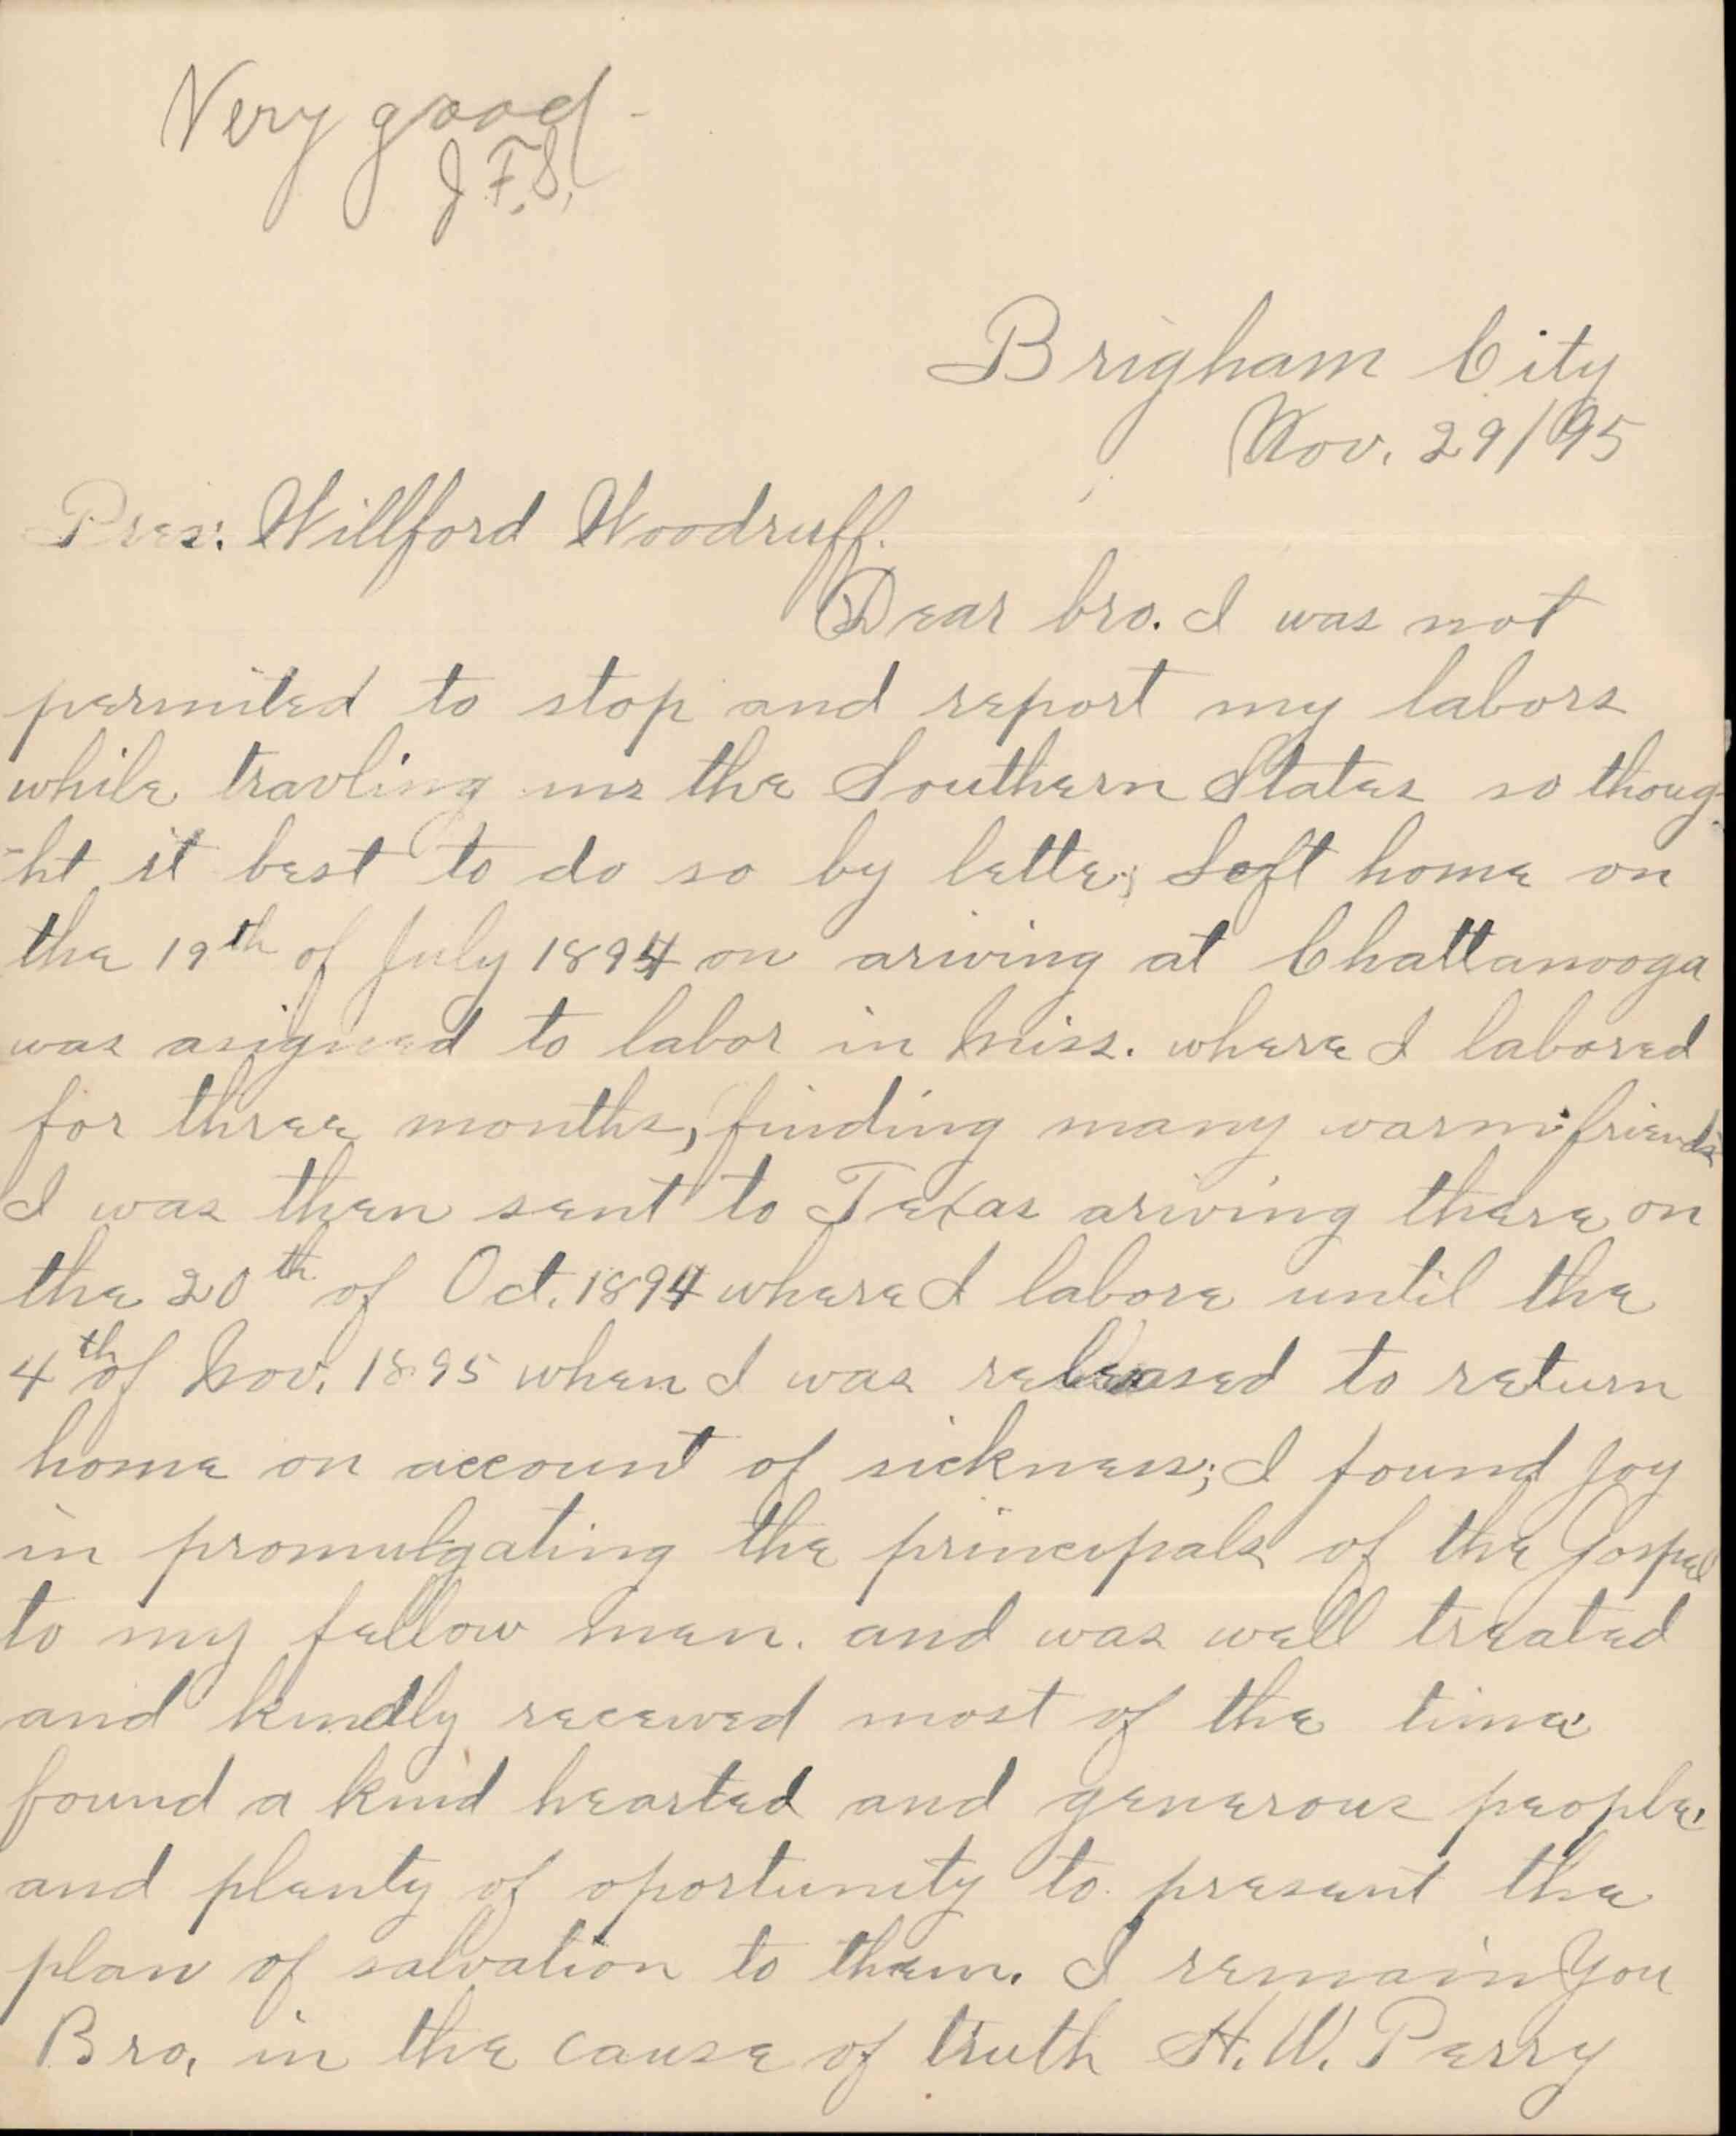 Very good -
J F.S.
Brigham City
Nov. 29/95
Pres: Willford Woodruff.
Dear bro. I was not
permited to stop and report my labors
while travling in the Southern States so thoug-
-ht it best to do so by letter; Left home on
the 19th of July 1894 on ariving at Chattanooga
was asigned to labor in Miss. where I labored
for three months, finding many warm friends
I was then sent to Texas ariving there on
the 20th of Oct. 1894 where I labore until the
4th of Nov. 1895 when I was released to return
home on account of sickness; I found joy
in promulgating the principals of the Gospel
to my fellow men. and was well treated
and kindly received most of the time
found a kind hearted and generous people.
and plenty of oportunity to present the
plan of salvation to them. I remain You
Bro. in the cause of truth H. W. Perry